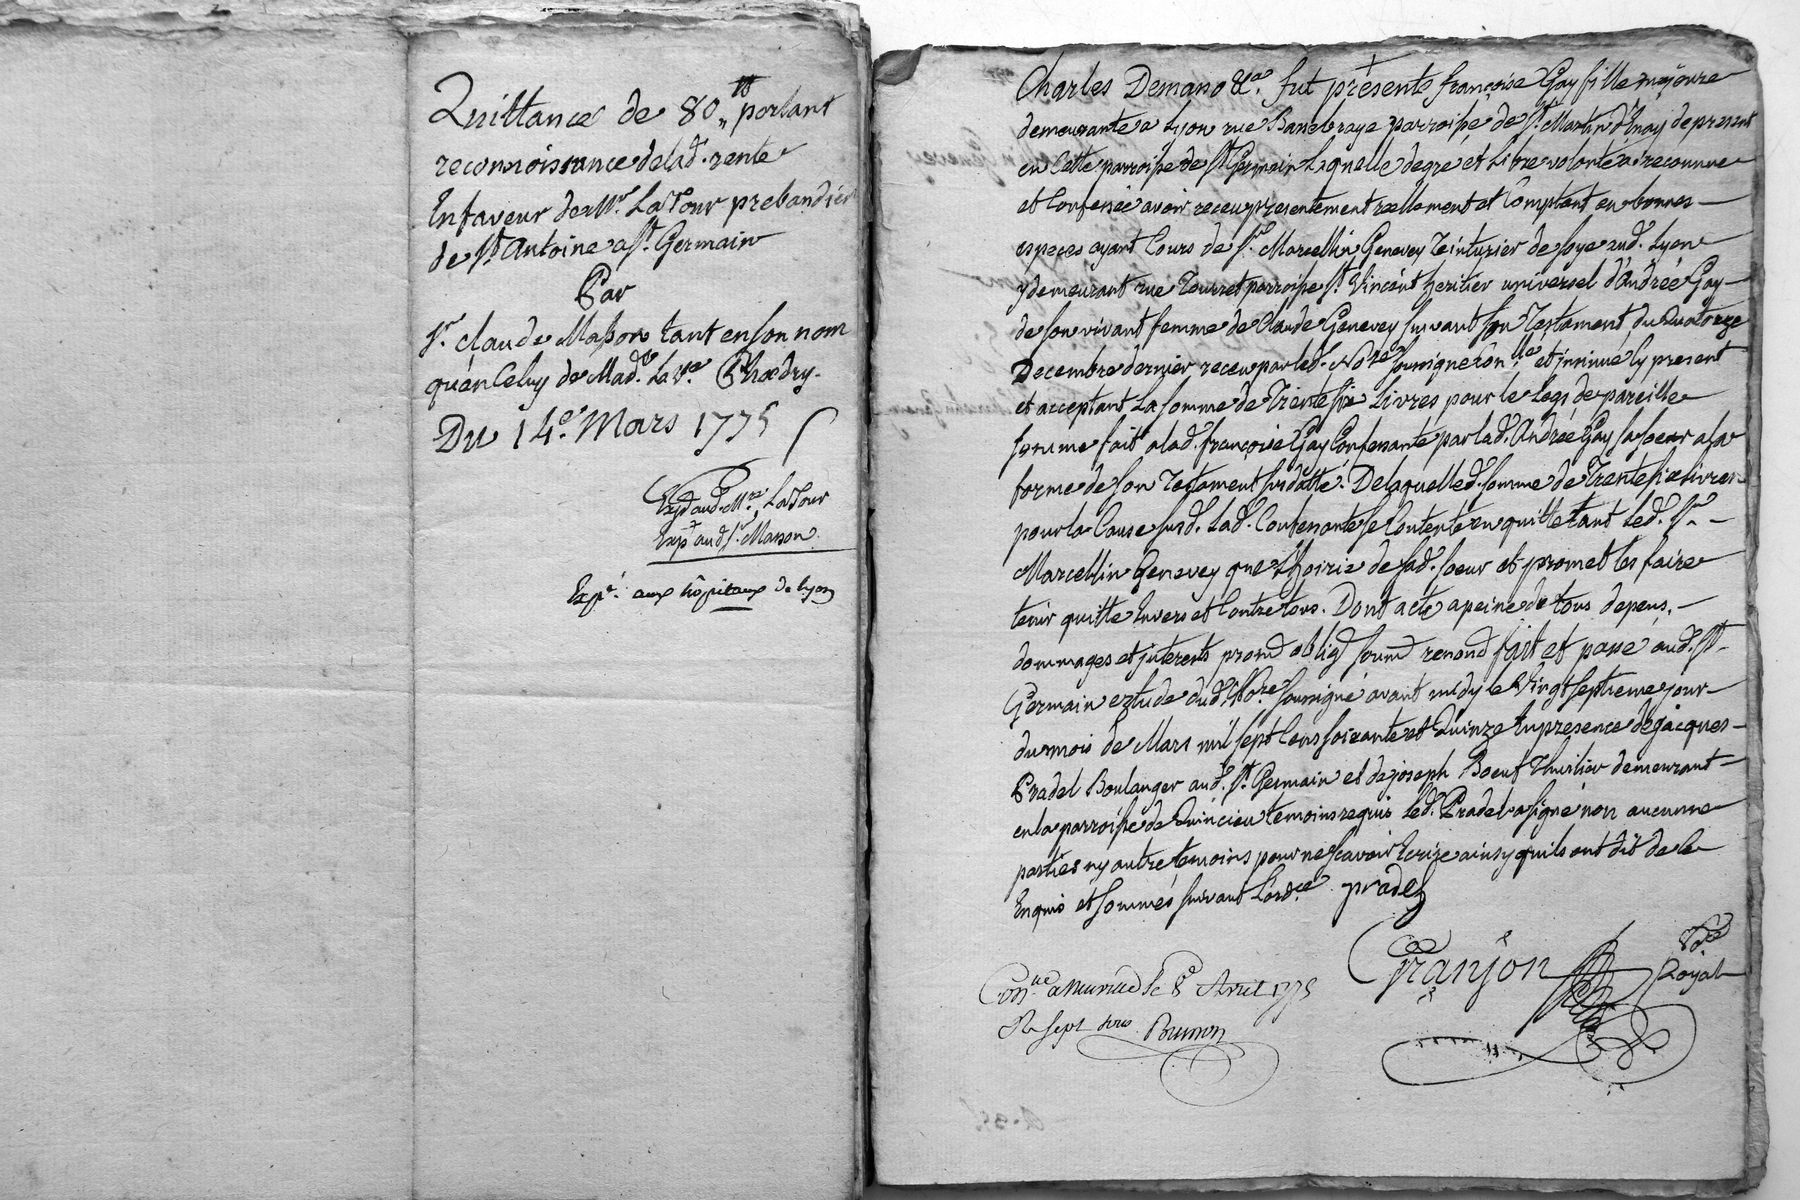 Quittance de 80 tt portant
reconnoissance de lad. rente
En faveur de Mr. LaTour prebandier
de St Antoine a St. Germain
Par
Sr. Claude Masson tant en son nom
qu'en Celuy de Mad.e La Ve.
Du 14e. Mars 1775
Expd aud. Mre. LaTour
Exp aud Sr. Masson
Expé. aux hôpitaux de Lyon
Charles Demano &a. fut présente françoise Gay fille majeure
demeurante a Lyon rue Bassebraye parroisse de St. Martin d'Enay de present
en Cette parroisse de St Germain Laquelle de gré et Libre volonté a reconnue
et Confessée avoir receu presentement reellement et Comptant en bonnes
especes ayant Cours de Sr. Marcellin Genevey Teinturier de soye aud. Lyon
y demeurant rue Tourret parroisse St. Vincent heritier universel d'andrée Gay
de son vivant femme de Claude Genevey suivant son Testament du Quatorze
Decembre dernier receu par led. Nore soussigné et insinué Cy present
et acceptant La somme de Trente six Livres pour le Legs de pareille
somme fait a lad. françoise Gay Confessante par lad. Andrée Gay sa soeur a la
forme de son Testament susdatté. De laquelle d. somme de Trente six Livres
pour la Cause susd. Lad. Confessante se Contente en quitte tant Led. Sr.
Marcellin Genevey que L'hoirie de sad. soeur et promet les faire
tenir quitte Envers et Contre tous. Dont acte a peine de tous depens,
dommages et interests promd obligd soumd renond fait et passé aud. St.
Germain eztude dud. Nore. soussigné avant midy le Vingt septieme jour
du mois de Mars mil sept Cens soixante et Quinze En presence de jacques
Pradel Boulanger aud. St. Germain et de joseph Boeuf Thuilier demeurant
en la parroisse de Quincieu temoins requis led. Pradel a signé non aucune
parties ny autre temoins pour ne sçavoir Ecrire ainsy qu'ils ont dit de ce
Enquis et sommés suivant L'ordce. pradel
Granjon Nore
Royal
Conlle a le 8 Avril 1775
R sept sous Brunon